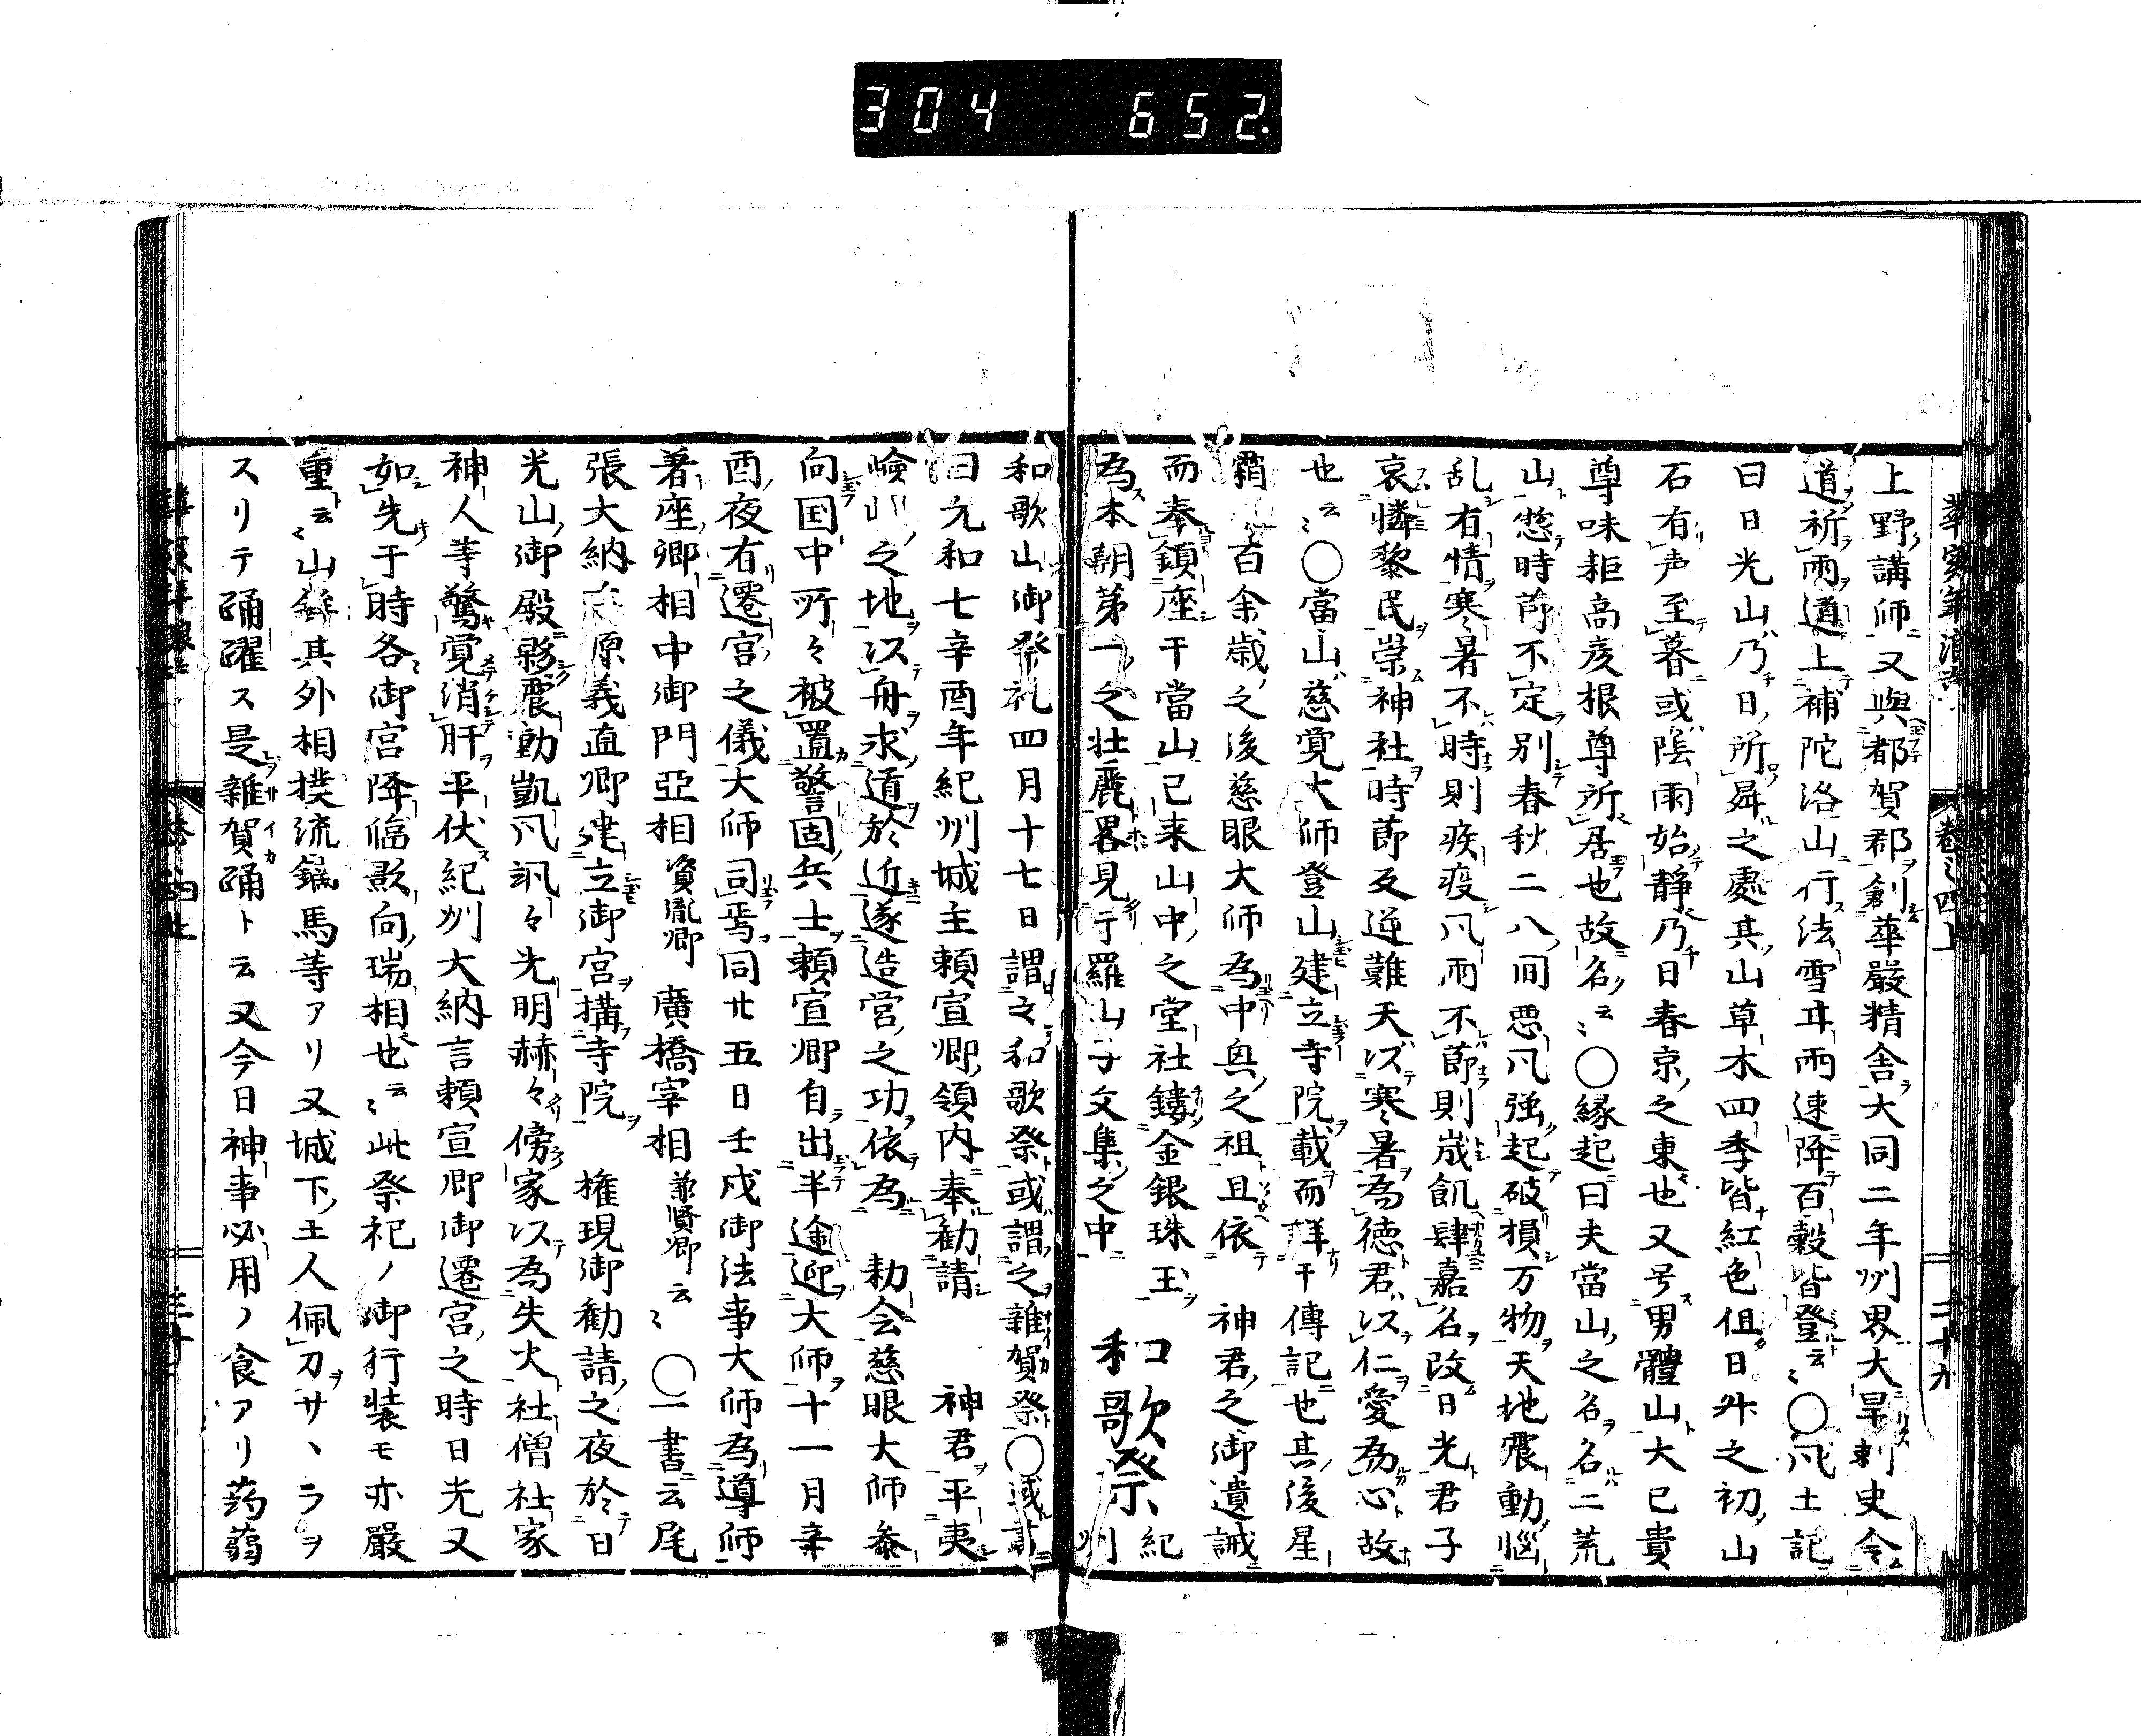 304 652.
卷之四上
二十九
上野講師又與都賀郡創華嚴精舎大同二年州界大旱刺史令
道祈雨道上補陀洛山行法雪耳雨速降百穀皆登云〻〇風土記
曰日光山乃日所昇之處其山草木四季皆紅色但日升之初山
石有声至暮或陰雨始静乃日春京之東也又号男體山大已貴
尊味耜高彦根尊所居也故名云〻〇縁起曰夫當山之名名二荒
山惣時莭不定别春秋二八間悪風強起破損万物天地震動惱
乱有情寒暑不時則疾疫風雨不節則歳飢肆嘉名改日光君子
哀憐黎民崇神社時莭反逆難天以寒暑為徳君以仁愛為心故
也云〻〇當山慈覚大師登山建立寺院載而詳于傳記也其後星
霜百余歳之後慈眼大師為中興之祖且依　神君之御遺誡
而奉鎮座于當山已来山中之堂社鏤金銀珠玉
為本朝第一之壮麗畧見于羅山子文集之中　和歌祭 紀州
和歌山御祭礼四月十七日謂之和歌祭或謂之雜賀祭〇或書
曰元和七辛酉年紀州城主頼宣卿領内奉勧請　神君平夷
嶮山之地以舟求道於近遂造営之功依為　勅会慈眼大師参
向国中所々被置警固兵士頼宣卿自出半途迎大師十一月辛
酉夜有遷宮之儀大師司焉同廿五日壬戌御法事大師為導師
著座卿相中御門亞相 資胤卿 廣橋宰相 兼賢卿 云〻〇一書云尾
張大納言源義直卿建立御宮搆寺院　権現御勧請之夜於日
光山御殿夥震動凱風颯々光明赫々傍家以為失火社僧社家
神人等驚覚消肝平伏紀州大納言頼宣卿御遷宮之時日光又
如先于時各御宮降臨影向瑞相也云〻此祭祀ノ御行装モ亦嚴
重云〻山鉾其外相撲流鏑馬等アリ又城下土人佩刀サヽラヲ
スリテ踊躍ス是雜賀踊ト云又今日神事必用ノ食アリ蒟蒻